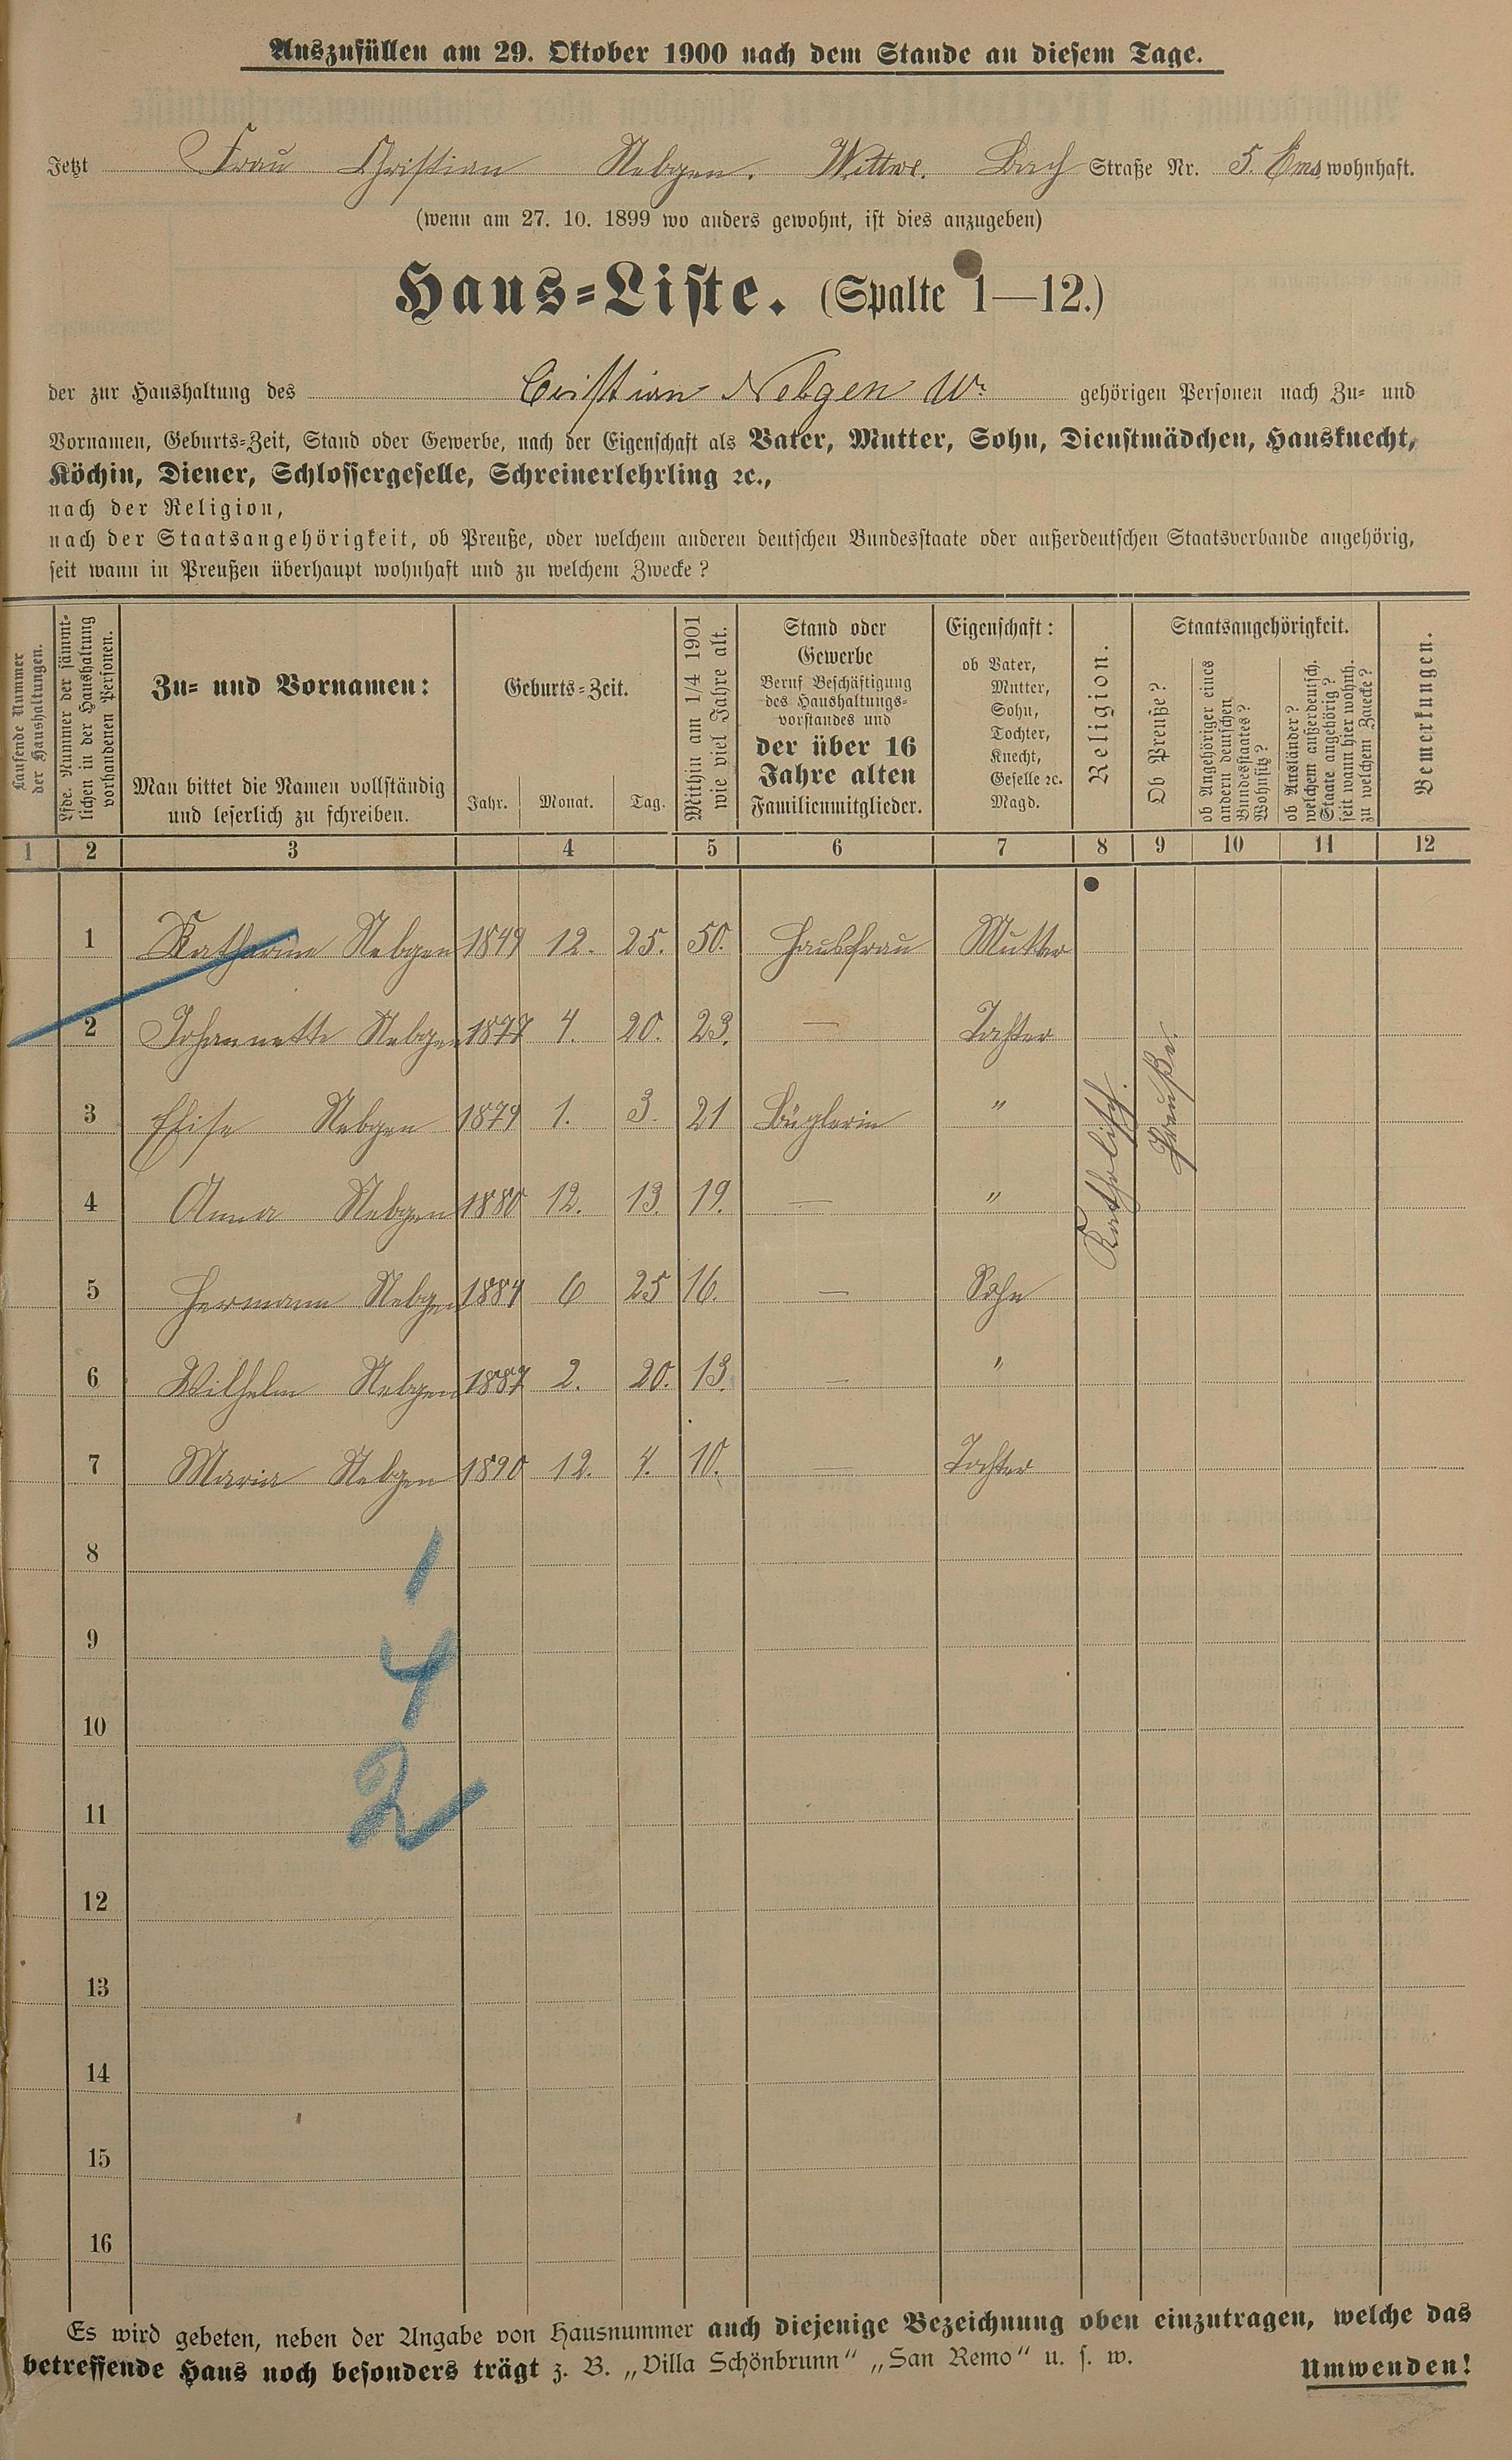 Auszufüllen am 29. Oktober 1900 nach dem Stande an diesem Tage.
Jetzt Frau Christian Nebgen. Wittwe. Bach Straße Nr. 5. Ems wohnhaft.
(wenn am 27. 10. 1899 wo anders gewohnt, ist dies anzugeben)
Haus-Liste. (Spalte 1—12.)
der zur Haushaltung des Cristian Nebgen Ww. gehörigen Personen nach Zu- und
Vornamen, Geburts-Zeit, Stand oder Gewerbe, nach der Eigenschaft als Vater, Mutter, Sohn, Dienstmädchen, Hausknecht,
Köchin, Diener, Schlossergeselle, Schreinerlehrling ꝛc.,
nach der Religion,
nach der Staatsangehörigkeit, ob Preuße, oder welchem anderen deutschen Bundesstaate oder außerdeutschen Staatsverbande angehörig,
seit wann in Preußen überhaupt wohnhaft und zu welchem Zwecke?
Laufende Nummer
der Haushaltungen.
Lfde. Nummer der sämmt-
lichen in der Haushaltung
vorhandenen Personen.
Zu- und Vornamen:
Man bittet die Namen vollständig
und leserlich zu schreiben.
Geburts-Zeit.
Jahr. Monat. Tag.
Mithin am 1/4 1901
wie viel Jahre alt.
Stand oder
Gewerbe
Beruf Beschäftigung
des Haushaltungs-
vorstandes und
der über 16
Jahre alten
Familienmitglieder.
Eigenschaft:
ob Vater,
Mutter,
Sohn,
Tochter,
Knecht,
Geselle ꝛc.
Magd.
Religion.
Staatsangehörigkeit.
Ob Preuße?
ob Angehöriger eines
andern deutschen
Bundesstaates?
Wohnsitz?
ob Ausländer?
welchem außerdeutsch.
Staate angehörig?
seit wann hier wohnh.
zu welchem Zwecke?
Bemerkungen.
1 2 3 4 5 6 7 8 9 10 11 12
1 Katharine Nebgen 1849 12. 25. 50. Hausfrau Mutter
2 Johannette Nebgen 1877 4. 20. 23. — Tochter
3 Elise Nebgen 1879 1. 3. 21 Büglerin "
4 Anna Nebgen 1880 12. 13. 19. — "
Katholisch. Preuße
5 Hermann Nebgen 1884 6 25 16. — Sohn
6 Wilhelm Nebgen 1887 2. 20. 13. — "
7 Maria Nebgen 1890 12. 4. 10. — Tochter
8
1
9
4
10
11
2
12
13
14
15
16
Es wird gebeten, neben der Angabe von Hausnummer auch diejenige Bezeichnung oben einzutragen, welche das
betreffende Haus noch besonders trägt z. B. „Villa Schönbrunn“ „San Remo“ u. s. w.
Umwenden!